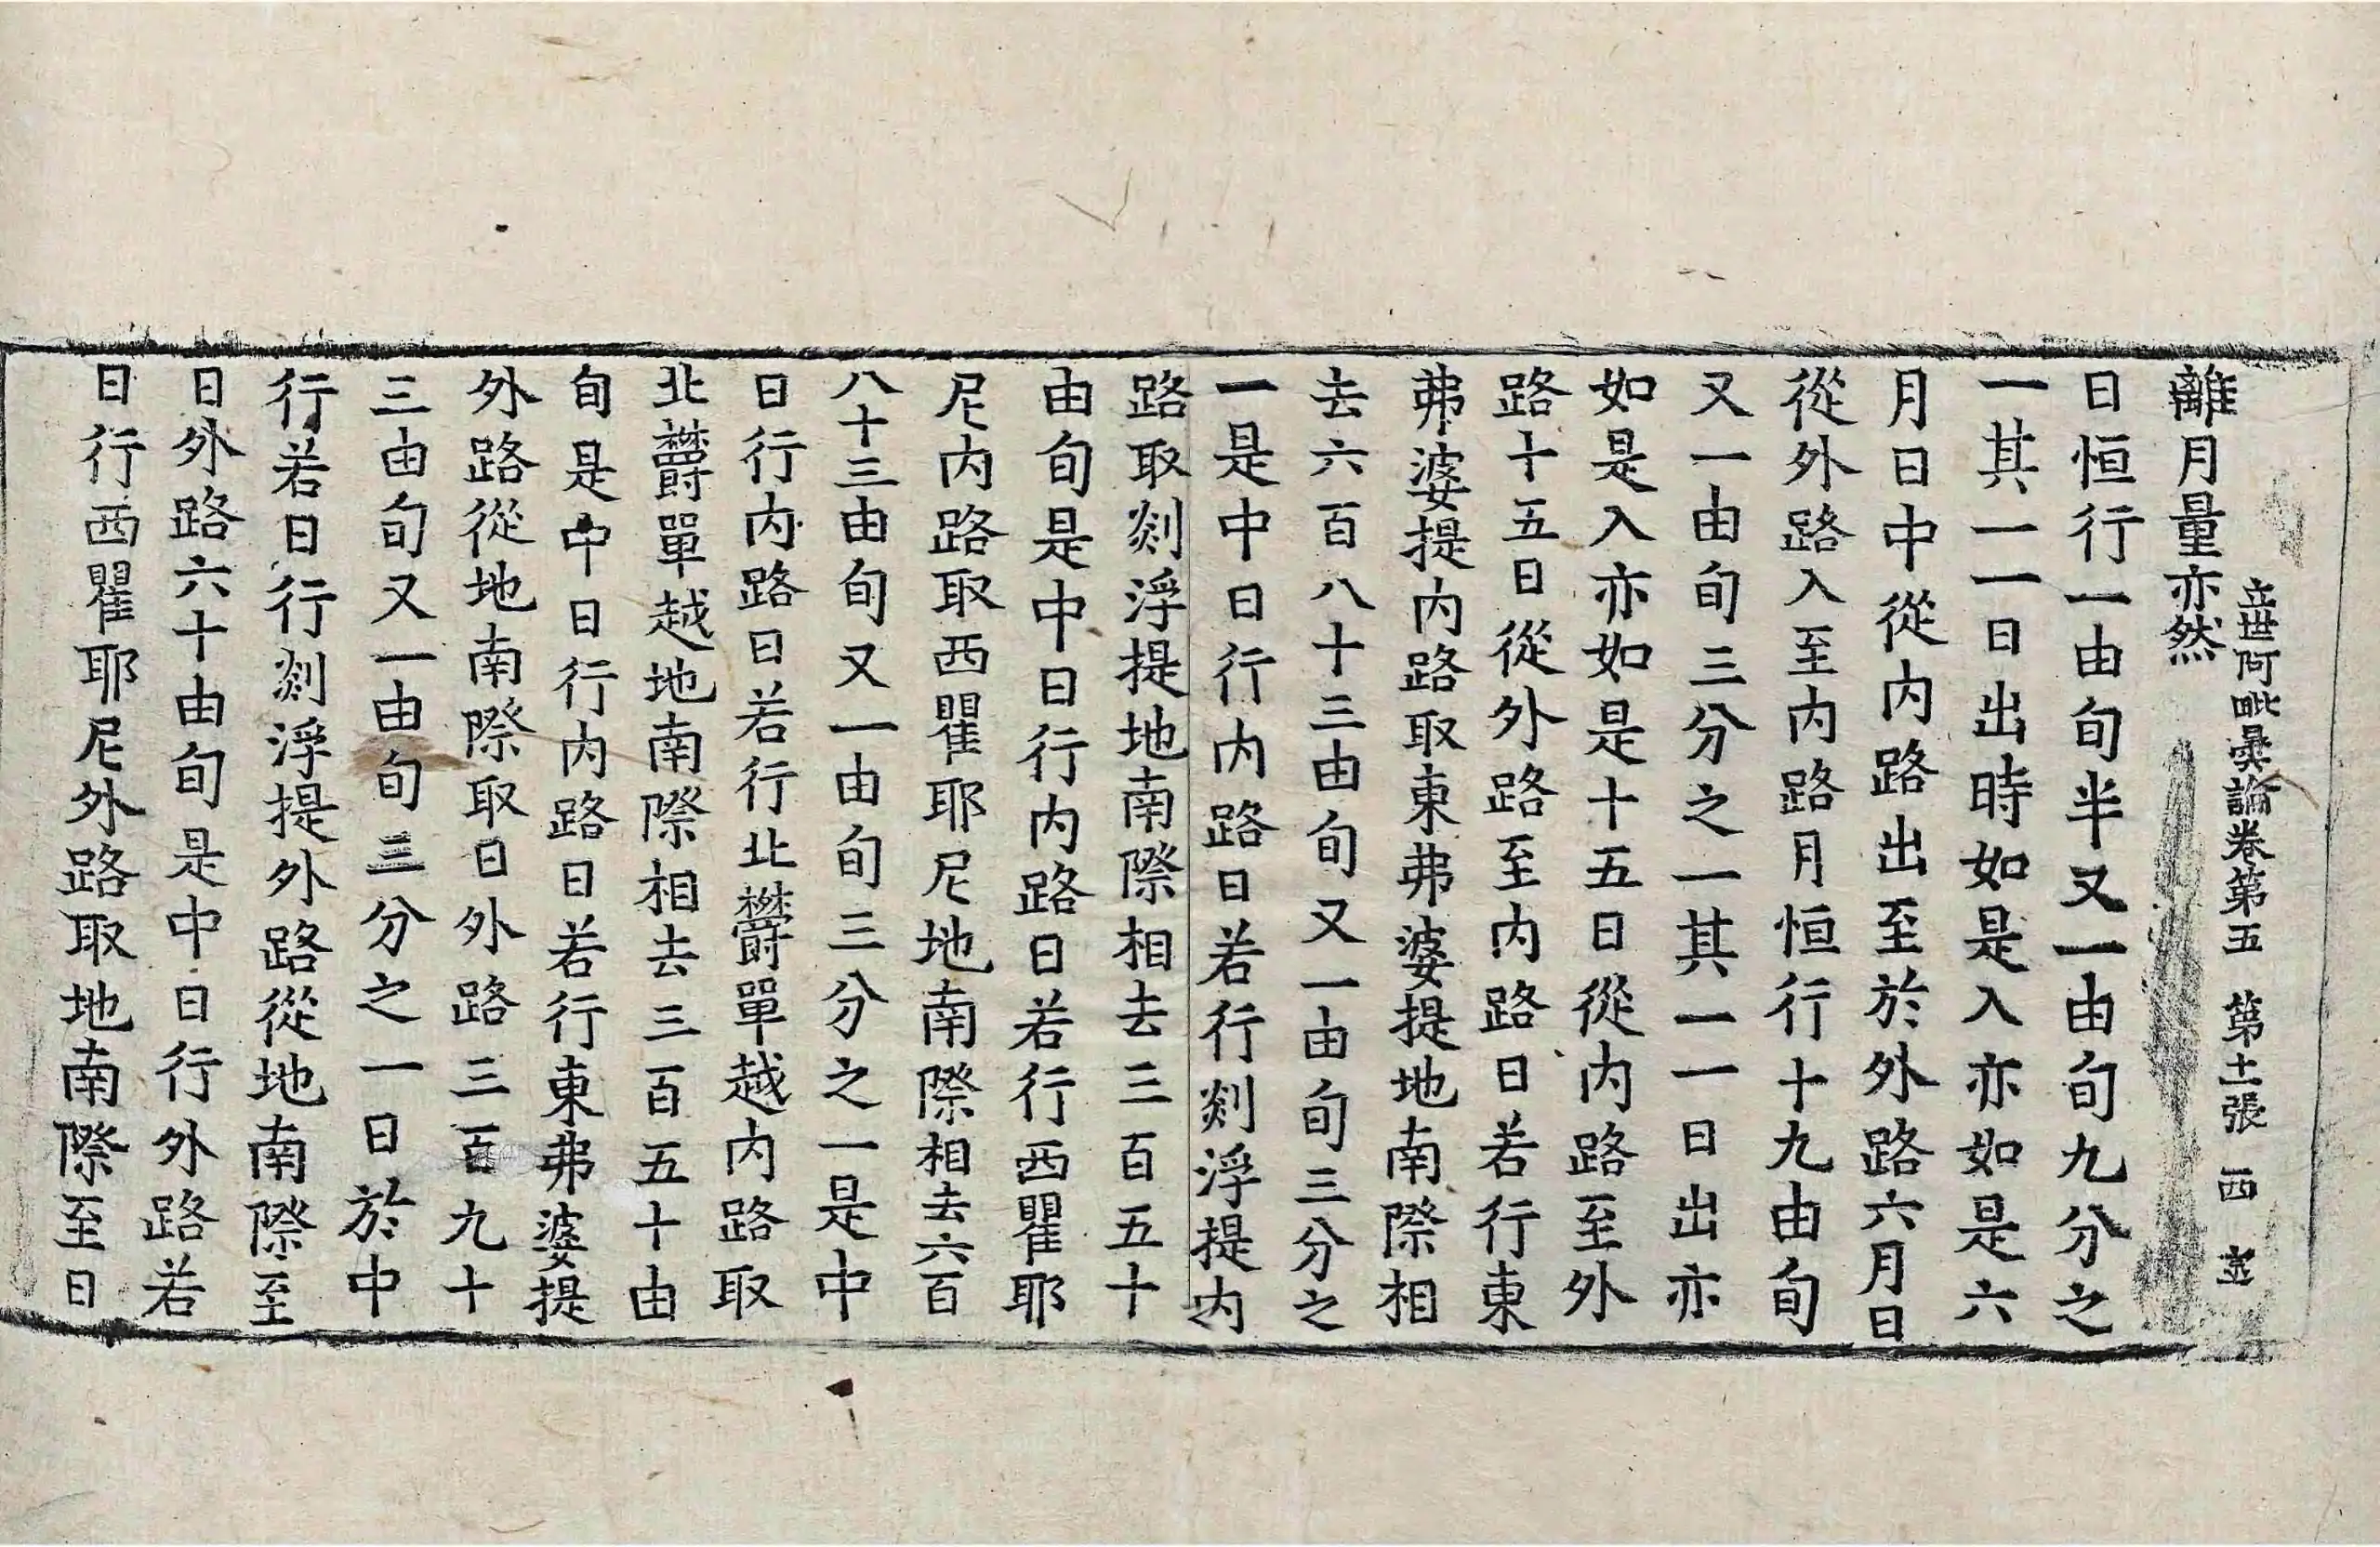 立世阿毗曇論卷第五　第十二張　西
離月量亦然
日恒行一由旬半又一由旬九分之
一其一一日出時如是入亦如是六
月日中從内路出至於外路六月日
從外路入至内路月恒行十九由旬
又一由旬三分之一其一一日出亦
如是入亦如是十五日從内路至外
路十五日從外路至内路日若行東
弗婆提内路取東弗婆提地南際相
去六百八十三由旬又一由旬三分之
一是中日行内路日若行剡浮提内
路取剡浮提地南際相去三百五十
由旬是中日行内路日若行西瞿耶
尼内路取西瞿耶尼地南際相去六百
八十三由旬又一由旬三分之一是中
日行内路日若行北欝單越内路取
北欝單越地南際相去三百五十由
旬是中日行内路日若行東弗婆提
外路從地南際取日外路三百九十
三由旬又一由旬三分之一日於中
行若日行剡浮提外路從地南際至
日外路六十由旬是中日行外路若
日行西瞿耶尼外路取地南際至日